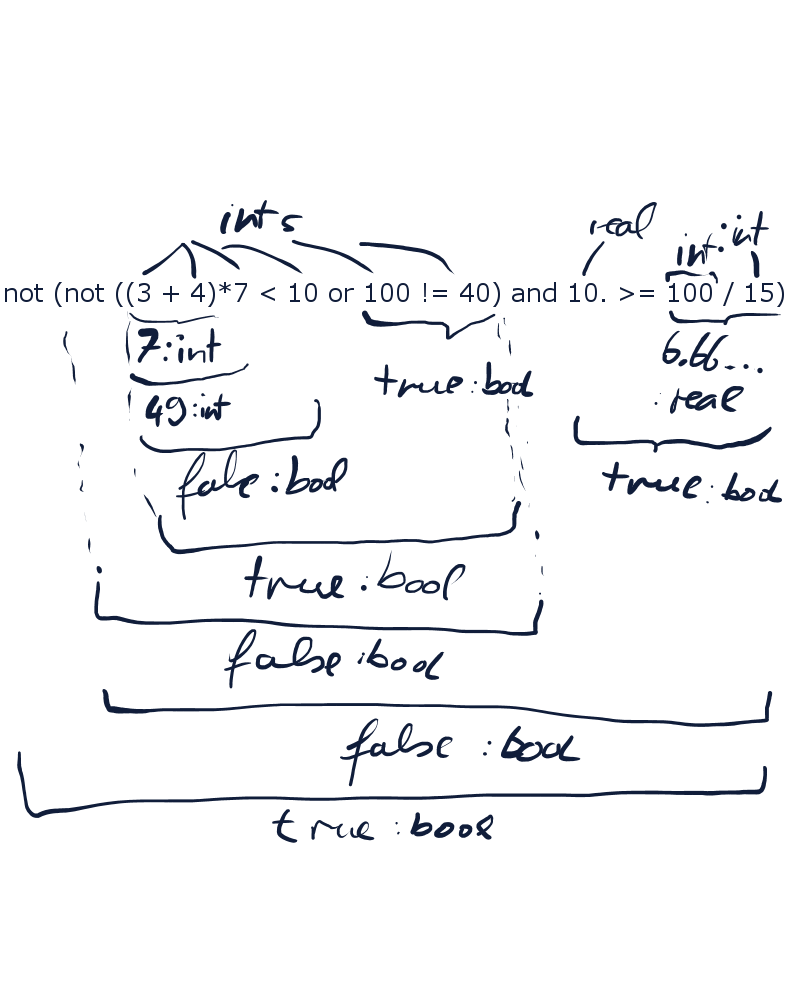 ints real int:int
not (not ((3 + 4)*7 < 10 or 100 != 40) and 10. >= 100 / 15)
7:int 6.66...
true:bool :real
49:int
fale:bool true:bool
true:bool
false:bool
false:bool
true:bool